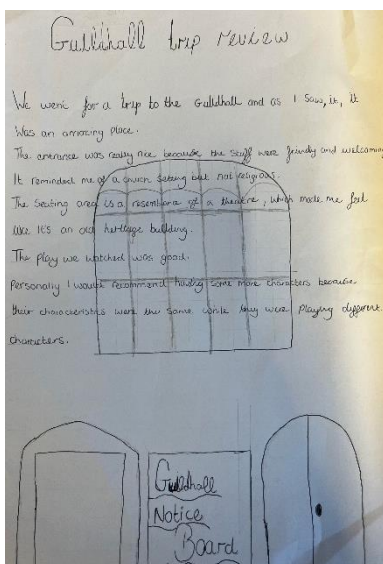 Guildhall trip review
We went for a trip to the Guildhall and as I saw, it, it
was an amazing place.
The enterance was really nice because the staff were friendly and welcoming
It reminded me of a church setting but not religious.
The Seating area is a resemblance of a theatre, which made me feel
like it's an old heritage building.
The play we watched was good.
Personally I would recommend having some more characters because
their characteristics were the same while they were playing different
characters.
Guildhall
Notice
Board